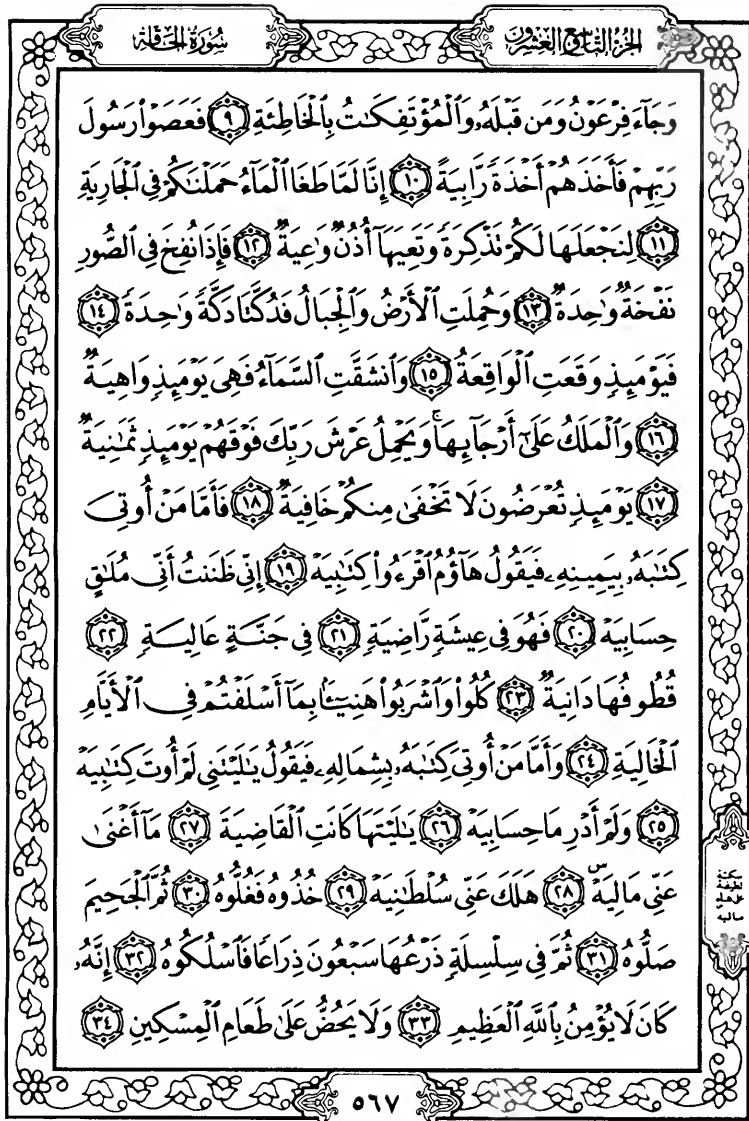 الجزء التاسع العشرون
سورة الحاقة
وَجَآءَ فِرْعَوْنُ وَمَن قَبْلَهُۥ وَٱلْمُؤْتَفِكَٰتُ بِٱلْخَاطِئَةِ ٩ فَعَصَوْا۟ رَسُولَ
رَبِّهِمْ فَأَخَذَهُمْ أَخْذَةً رَّابِيَةً ١٠ إِنَّا لَمَّا طَغَا ٱلْمَآءُ حَمَلْنَٰكُمْ فِى ٱلْجَارِيَةِ
١١ لِنَجْعَلَهَا لَكُمْ تَذْكِرَةً وَتَعِيَهَآ أُذُنٌ وَٰعِيَةٌ ١٢ فَإِذَا نُفِخَ فِى ٱلصُّورِ
نَفْخَةٌ وَٰحِدَةٌ ١٣ وَحُمِلَتِ ٱلْأَرْضُ وَٱلْجِبَالُ فَدُكَّتَا دَكَّةً وَٰحِدَةً ١٤
فَيَوْمَئِذٍ وَقَعَتِ ٱلْوَاقِعَةُ ١٥ وَٱنشَقَّتِ ٱلسَّمَآءُ فَهِىَ يَوْمَئِذٍ وَاهِيَةٌ
١٦ وَٱلْمَلَكُ عَلَىٰٓ أَرْجَآئِهَا ۚ وَيَحْمِلُ عَرْشَ رَبِّكَ فَوْقَهُمْ يَوْمَئِذٍ ثَمَٰنِيَةٌ
١٧ يَوْمَئِذٍ تُعْرَضُونَ لَا تَخْفَىٰ مِنكُمْ خَافِيَةٌ ١٨ فَأَمَّا مَنْ أُوتِىَ
كِتَٰبَهُۥ بِيَمِينِهِۦ فَيَقُولُ هَآؤُمُ ٱقْرَءُوا۟ كِتَٰبِيَهْ ١٩ إِنِّى ظَنَنتُ أَنِّى مُلَٰقٍ
حِسَابِيَهْ ٢٠ فَهُوَ فِى عِيشَةٍ رَّاضِيَةٍ ٢١ فِى جَنَّةٍ عَالِيَةٍ ٢٢
قُطُوفُهَا دَانِيَةٌ ٢٣ كُلُوا۟ وَٱشْرَبُوا۟ هَنِيٓـًٔۢا بِمَآ أَسْلَفْتُمْ فِى ٱلْأَيَّامِ
ٱلْخَالِيَةِ ٢٤ وَأَمَّا مَنْ أُوتِىَ كِتَٰبَهُۥ بِشِمَالِهِۦ فَيَقُولُ يَٰلَيْتَنِى لَمْ أُوتَ كِتَٰبِيَهْ
٢٥ وَلَمْ أَدْرِ مَا حِسَابِيَهْ ٢٦ يَٰلَيْتَهَا كَانَتِ ٱلْقَاضِيَةَ ٢٧ مَآ أَغْنَىٰ
عَنِّى مَالِيَهْ ۜ ٢٨ هَلَكَ عَنِّى سُلْطَٰنِيَهْ ٢٩ خُذُوهُ فَغُلُّوهُ ٣٠ ثُمَّ ٱلْجَحِيمَ
صَلُّوهُ ٣١ ثُمَّ فِى سِلْسِلَةٍ ذَرْعُهَا سَبْعُونَ ذِرَاعًا فَٱسْلُكُوهُ ٣٢ إِنَّهُۥ
كَانَ لَا يُؤْمِنُ بِٱللَّهِ ٱلْعَظِيمِ ٣٣ وَلَا يَحُضُّ عَلَىٰ طَعَامِ ٱلْمِسْكِينِ ٣٤
سكتة
لطيفة
على هاء
ماليه
٥٦٧